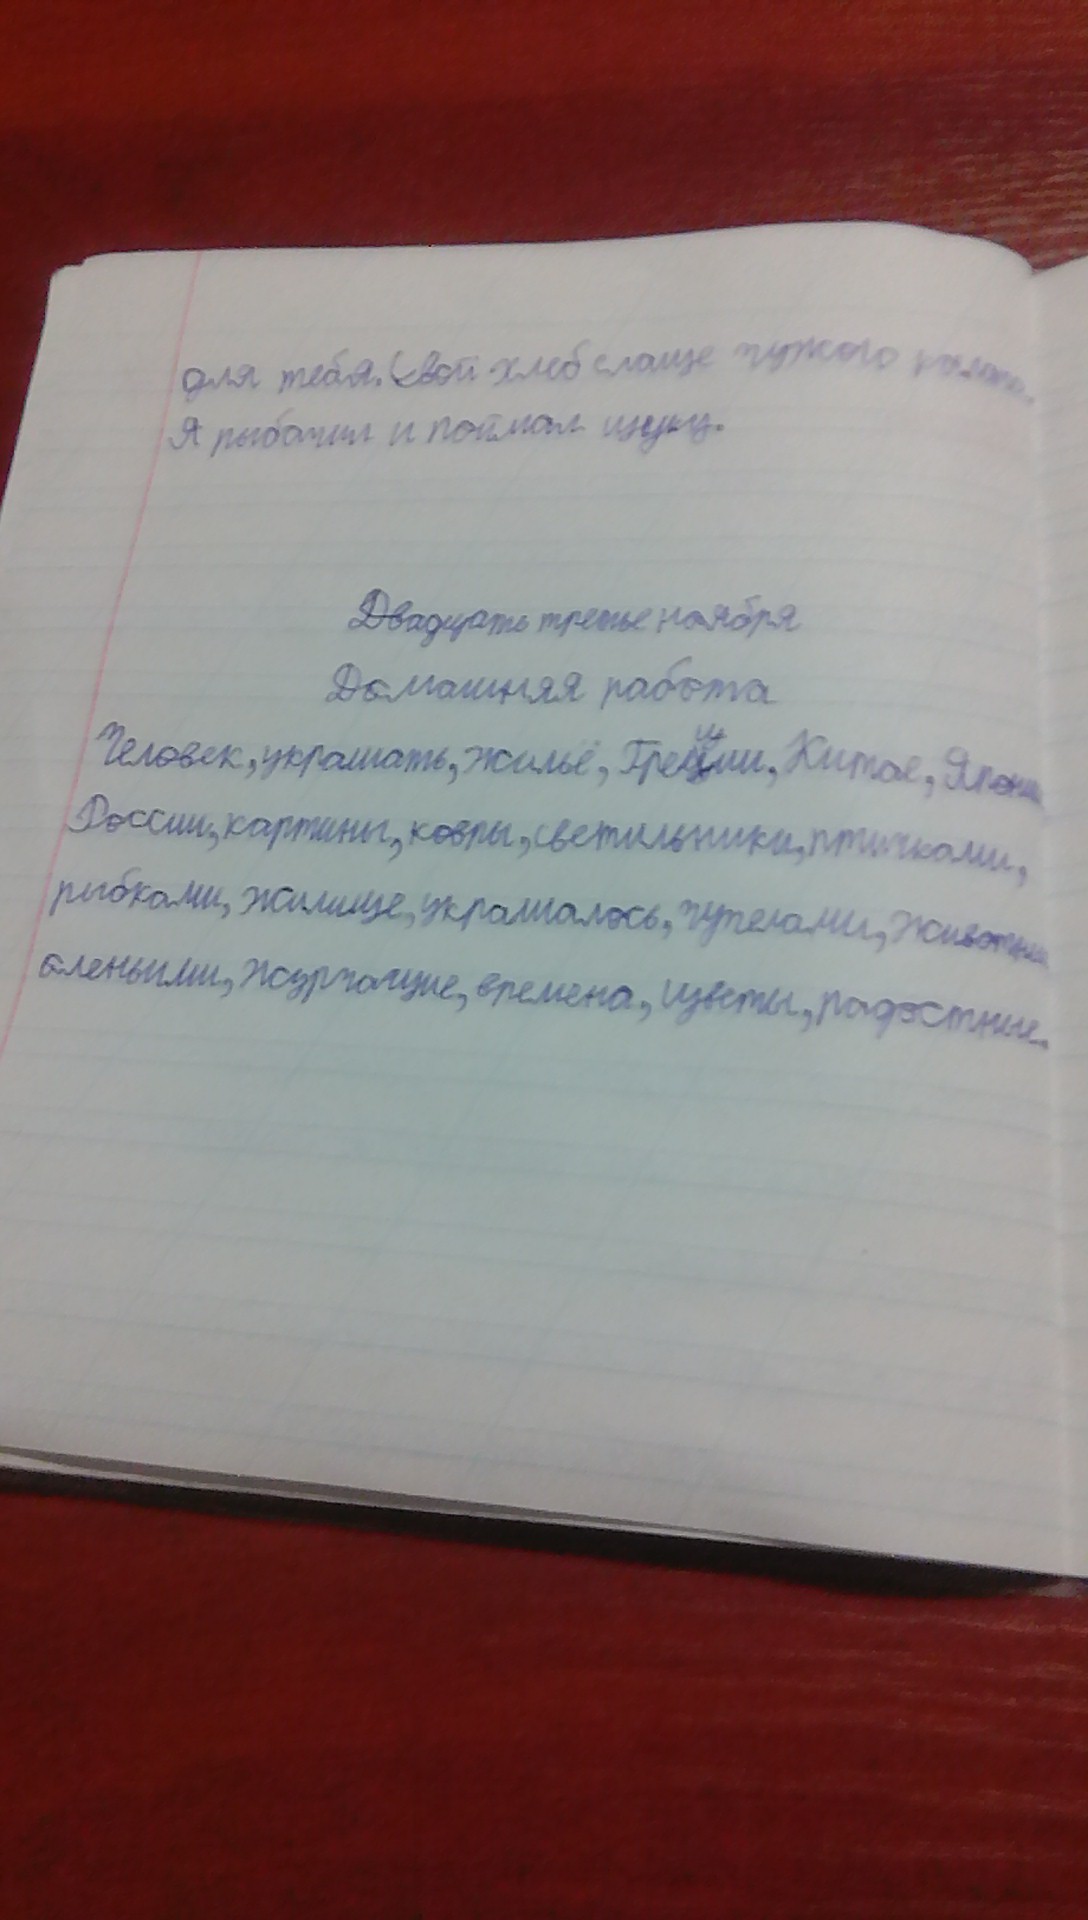 для тебя. Свой хлеб слаще чужого
Я рыбачил и поймал щуку.
Двадцать третье ноября
Домашняя работа
Человек, украшать, жильё, Греции, Китае, Япони
России, картины, ковры, светильники, птичками,
рыбками, жилище, украшалось, чучелами, животны
оленьими, журчащие, времена, цветы, радостные.